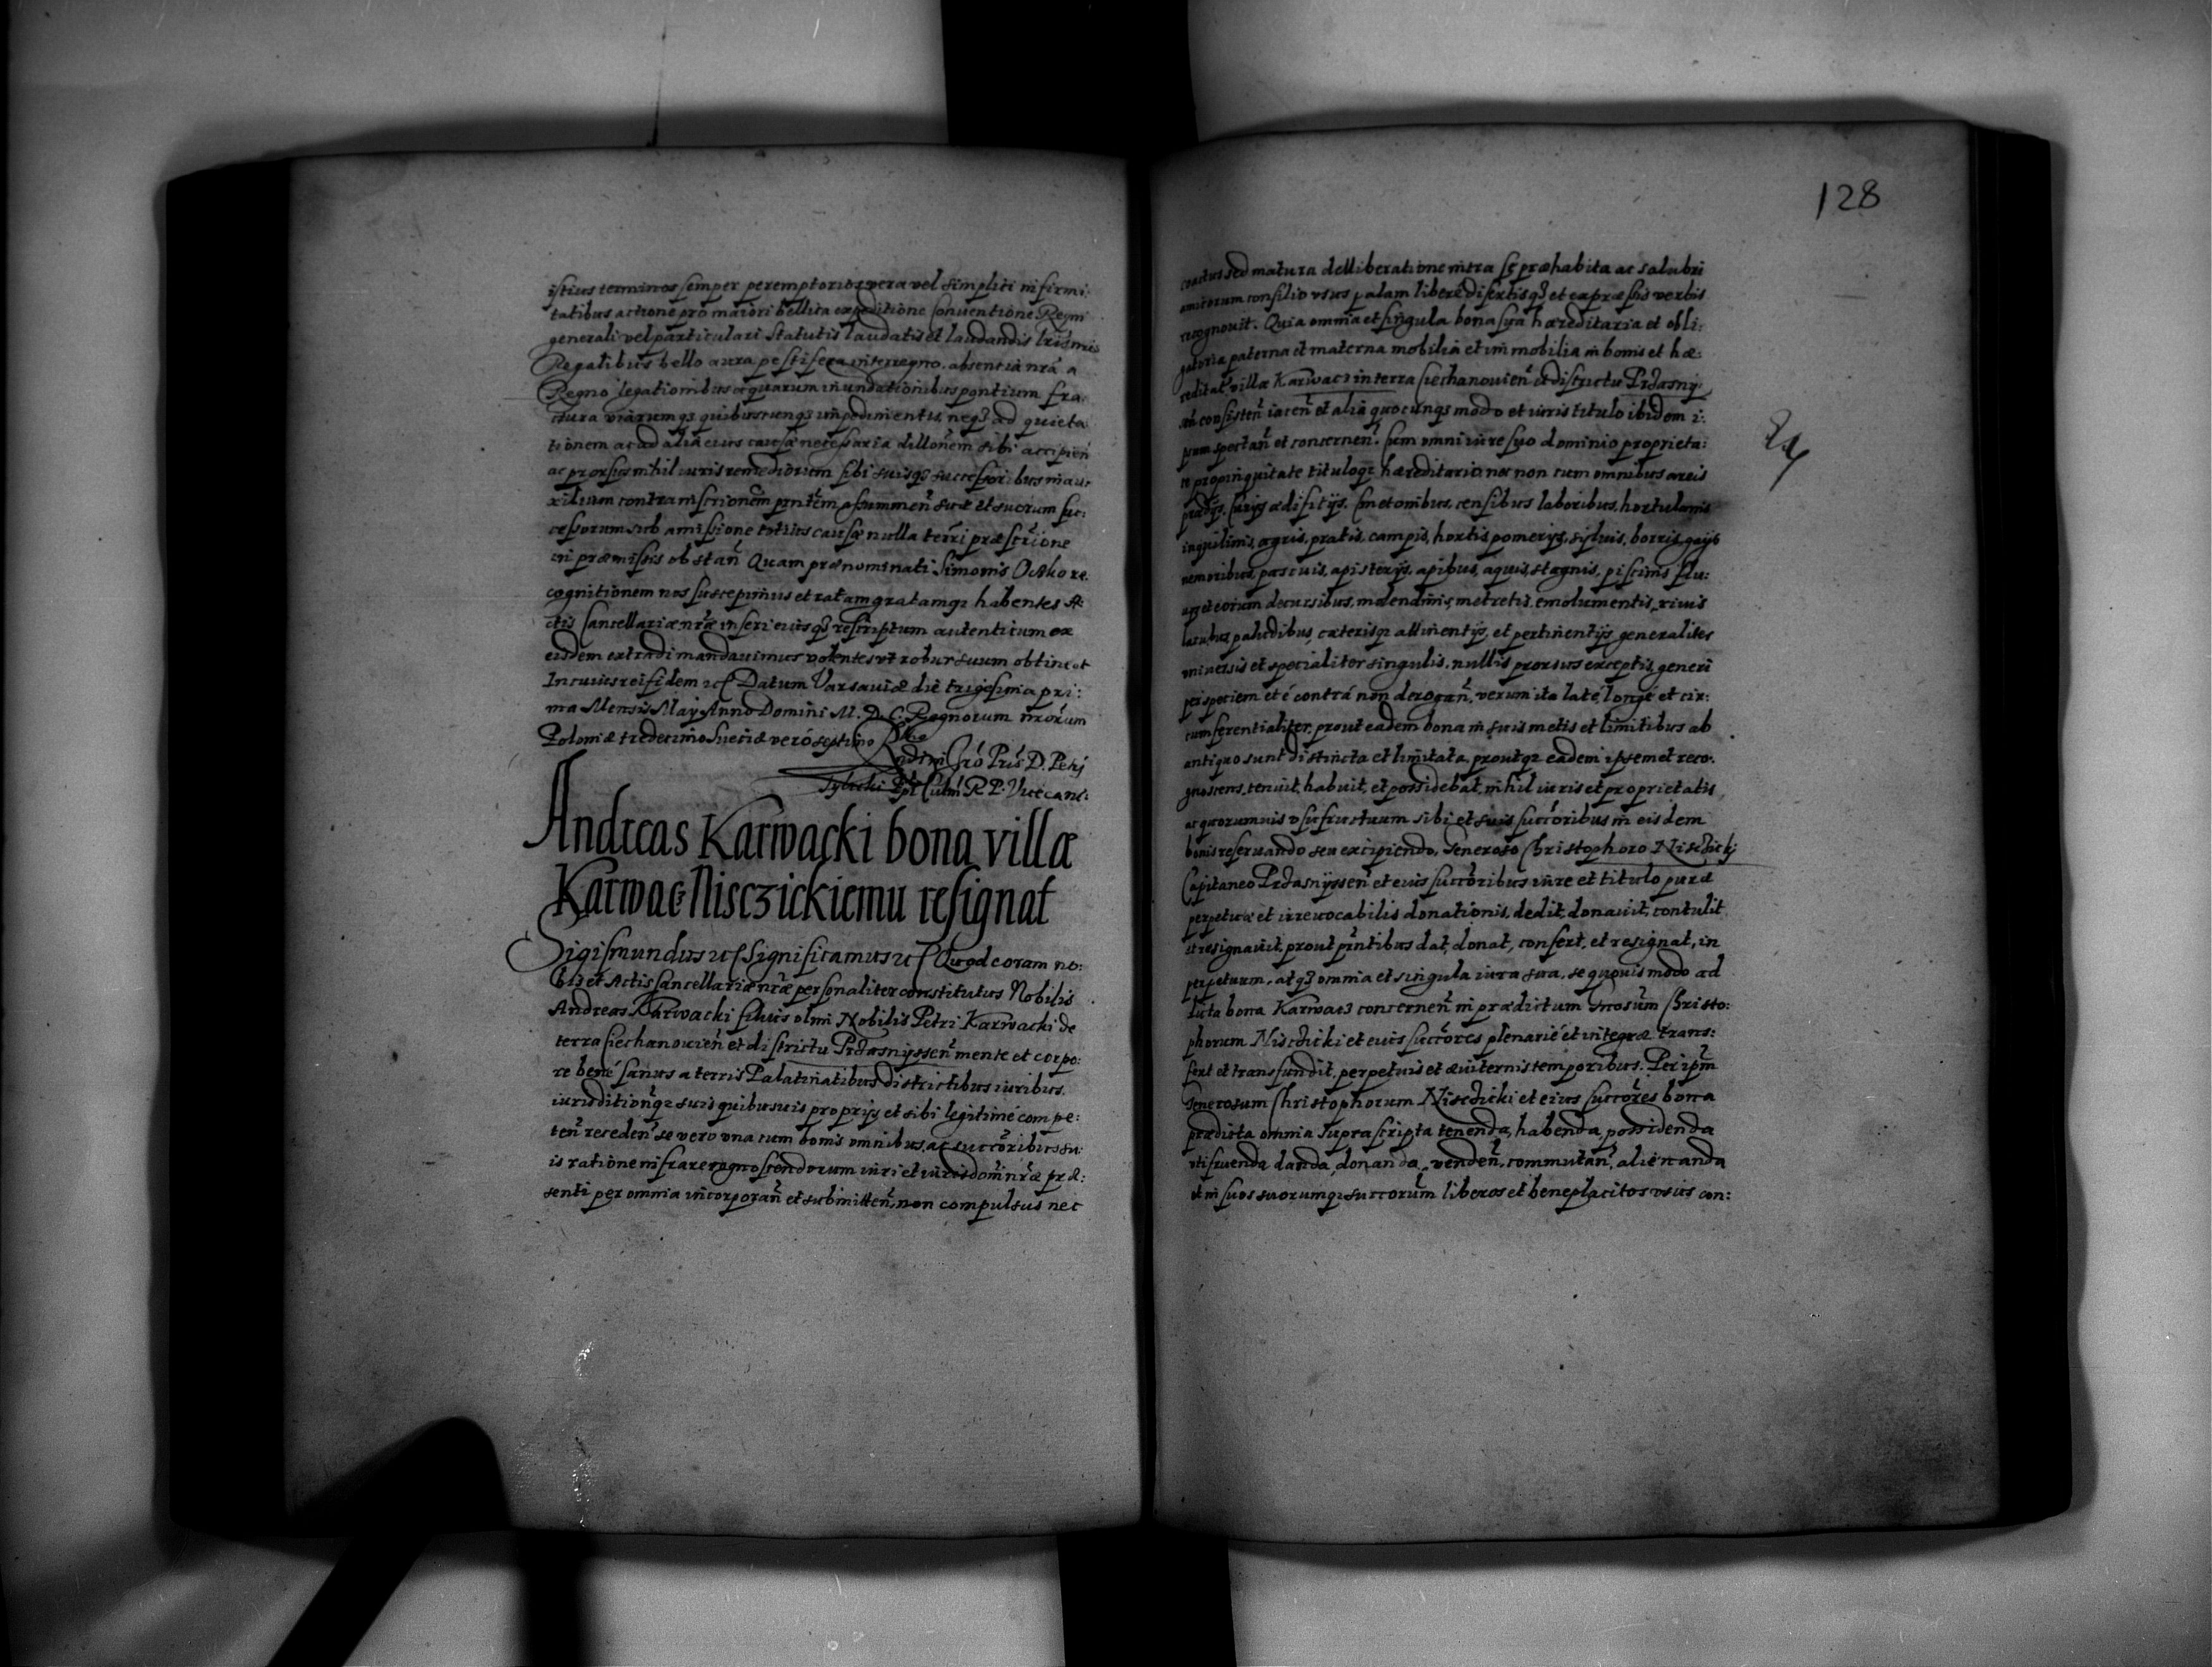 istius terminos semper peremptorios vera vel simplici infirmi:
tatibus actione pro maiori bellica expeditione Conuentione Regni
generali vel particulari Statutis laudatis et laudandis lr̃is
Regalibus bello aura pestifera interregno absentia nr̃a a
Regno legationibus aquarum inundationibus pontium fra
ctura viarumqȝ quibuscunqȝ impedimentis, neqȝ ad quieta
tionem ac ad alia eius causæ necessaria dillon̄em sibi accipien̄
ac prorsus nihil iuris remediorum sibi suisqȝ successoribus in au
xilium contra inscrionem pn̄tem assummen̄ suæ et suorum suc:
cessorum sub amissione totius causæ nulla terrj præscrione
in præmissis obstan̄ Quam prænominati Simonis Ocko re
cognitionem nos suscepimus et ratam gratamqȝ habentes A:
ctis Cancellariæ nr̃æ inseri eiusqȝ rescriptum autenticum ex
eisdem extradi mandauimus volentes vt robur suum obtineat
In cuius rei fidem ꝛc Datum Varsauiæ die trigesima pri:
ma Mensis May Anno Domini M. D. C. Regnorum nr̃orum
Poloniæ tredecimo Sueciæ veró septimo
D. Petrj
Tylicki Epi Culm̄ R P. Vicecanc:
Andreas Karwacki bona villæ
Karwacz Nisczickiemu resignat
Sigismundus ꝛc Significamus ꝛc Quod coram no:
bis et Actis Cancellariæ nr̃æ personaliter constitutus Nobilis
Andreas Karwacki filius olim Nobilis Petri Karwacki de
terra Ciechanouien̄ et districtu Przasnyssen̄ mente et corpo:
re bené sanus a terris Palatinatibus districtibus iuribus
iurisditionqȝ suis quibusuis proprijs et sibi legitimé compe:
ten̄ receden̄ se vero vna cum bonis omnibus, ac succoribus su
is ratione infrarecognoscendorum iuri et iurisdom nr̃æ præ:
senti per omnia incorporan̄ et submitten̄, non compulsus nec
128
coactus sed matura delliberatione intra se præhabita ac salubri
amicorum consilio vsus palam liberé disertisqȝ et expræssis verbis
recognouit. Quia omnia et singula bona sua hæreditaria et obli:
gatoria paterna et materna mobilia et immobilia in bonis et hæ:
reditat̄ villæ Karwacz in terra Ciechanouien̄ et districtu Przasny:
ssen̄ consisten̄ iacen̄ et alia quocunqȝ modo et iuris titulo ibidem i:
psum spectan̄ et concernen̄. Cum omni iure suo dominio proprieta:
te propinquitate tituloqȝ hæreditario nec non cum omnibus areis
prædijs, Curijs ædificijs, Cmetonibus, censibus laboribus, hortulanis
inquilinis, agris, pratis, campis, hortis pomerijs, syluis, borris, gaijs
nemoribus, pascuis, apisterijs, apibus, aquis, stagnis, piscinis flu:
uijs et eorum decursibus, molendinis, metretis, emolumentis, riuis
lacubus, paludibus, cæterisqȝ attinentijs, et pertinentijs generaliter
vniuersis et specialiter singulis, nullis prorsus exceptis, generi
per speciem et é contrá non derogan̄, verum ita laté, longé et cir:
cumferentialiter, prout eadem bona in suis metis et limitibus ab
antiquo sunt distincta et limitata, proutqȝ eadem ipsemet reco:
gnoscens, tenuit, habuit, et possidebat, nihil iuris et proprietatis
ac quorumuis vsufructuum sibi et suis succoribus in eisdem
bonis reseruando seu excipiendo, Generoso Christophoro Nisczicky
Capitaneo Przasnyssen̄ et eius succoribus iure et titulo puræ
perpetuæ et irreuocabilis donationis, dedit, donauit, contulit
et resignauit, prout pn̄tibus dat, donat, confert, et resignat, in
perpetuum, atqȝ omnia et singula iura sua, se quouis modo ad
dicta bona Karwacz concernen̄ in prædictum Gnosum Christo:
phorum Nisczicki et eius succores plenarié et integræ trans:
fert et transfundit, perpetuis et æuiternis temporibus. Per ipm̄
Generosum Christophorum Nisczicki et eius succores bona
prædicta omnia supra scripta tenenda, habenda, possidenda
vtifruenda danda, donanda, venden̄, commutan̄, alienanda
et in suos suorumqȝ succorum liberos et beneplacitos vsus con: